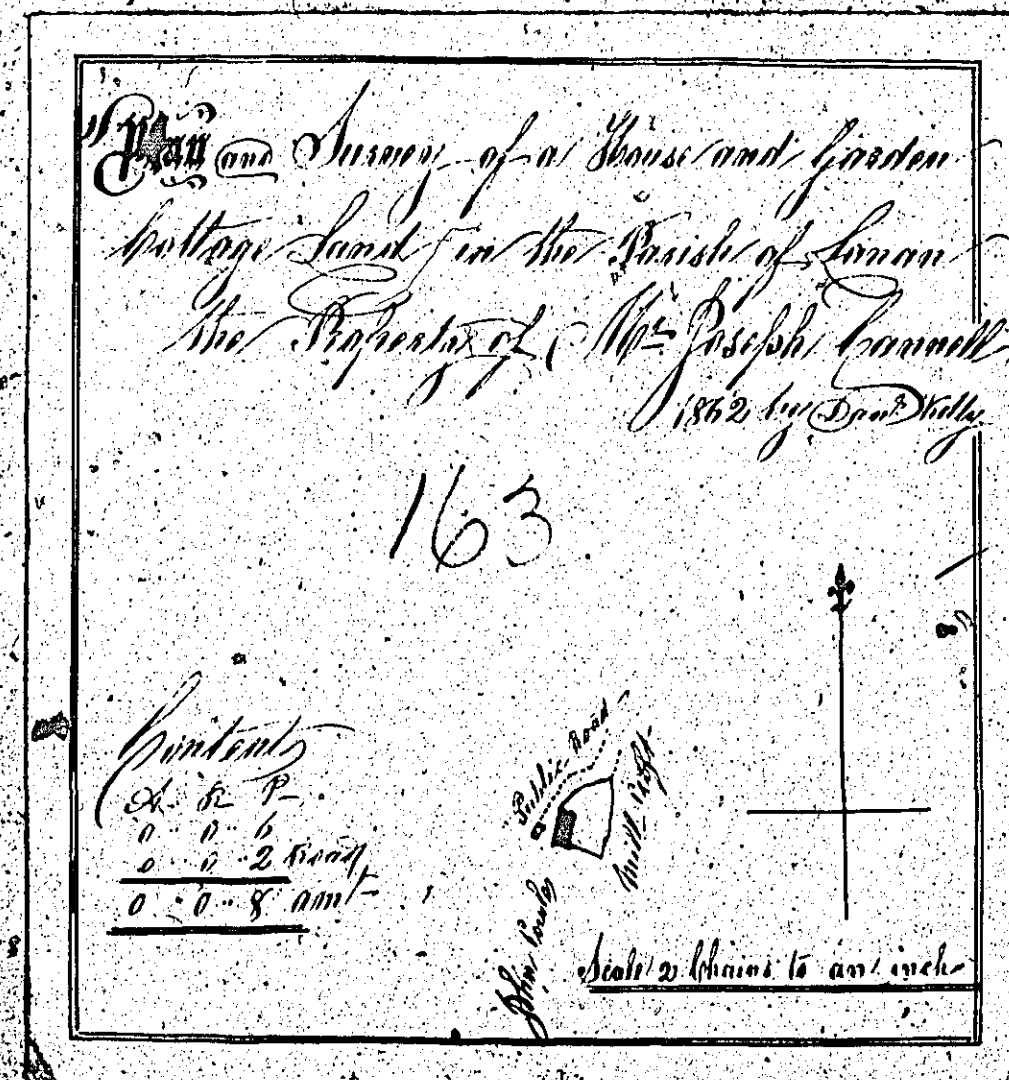 Plan and Survey of a House and Garden
Cottage Land in the Parish of Lonan
the Property of Mr Joseph Cannell
1862 by Dand Kelly
163
Contents
A R P
0 .. 0 .. 6
0 .. 0 .. 2 Road
0 .. 0 .. 8 amt
Public Road
Mill Croft
John
Scale 2 Chains to an inch